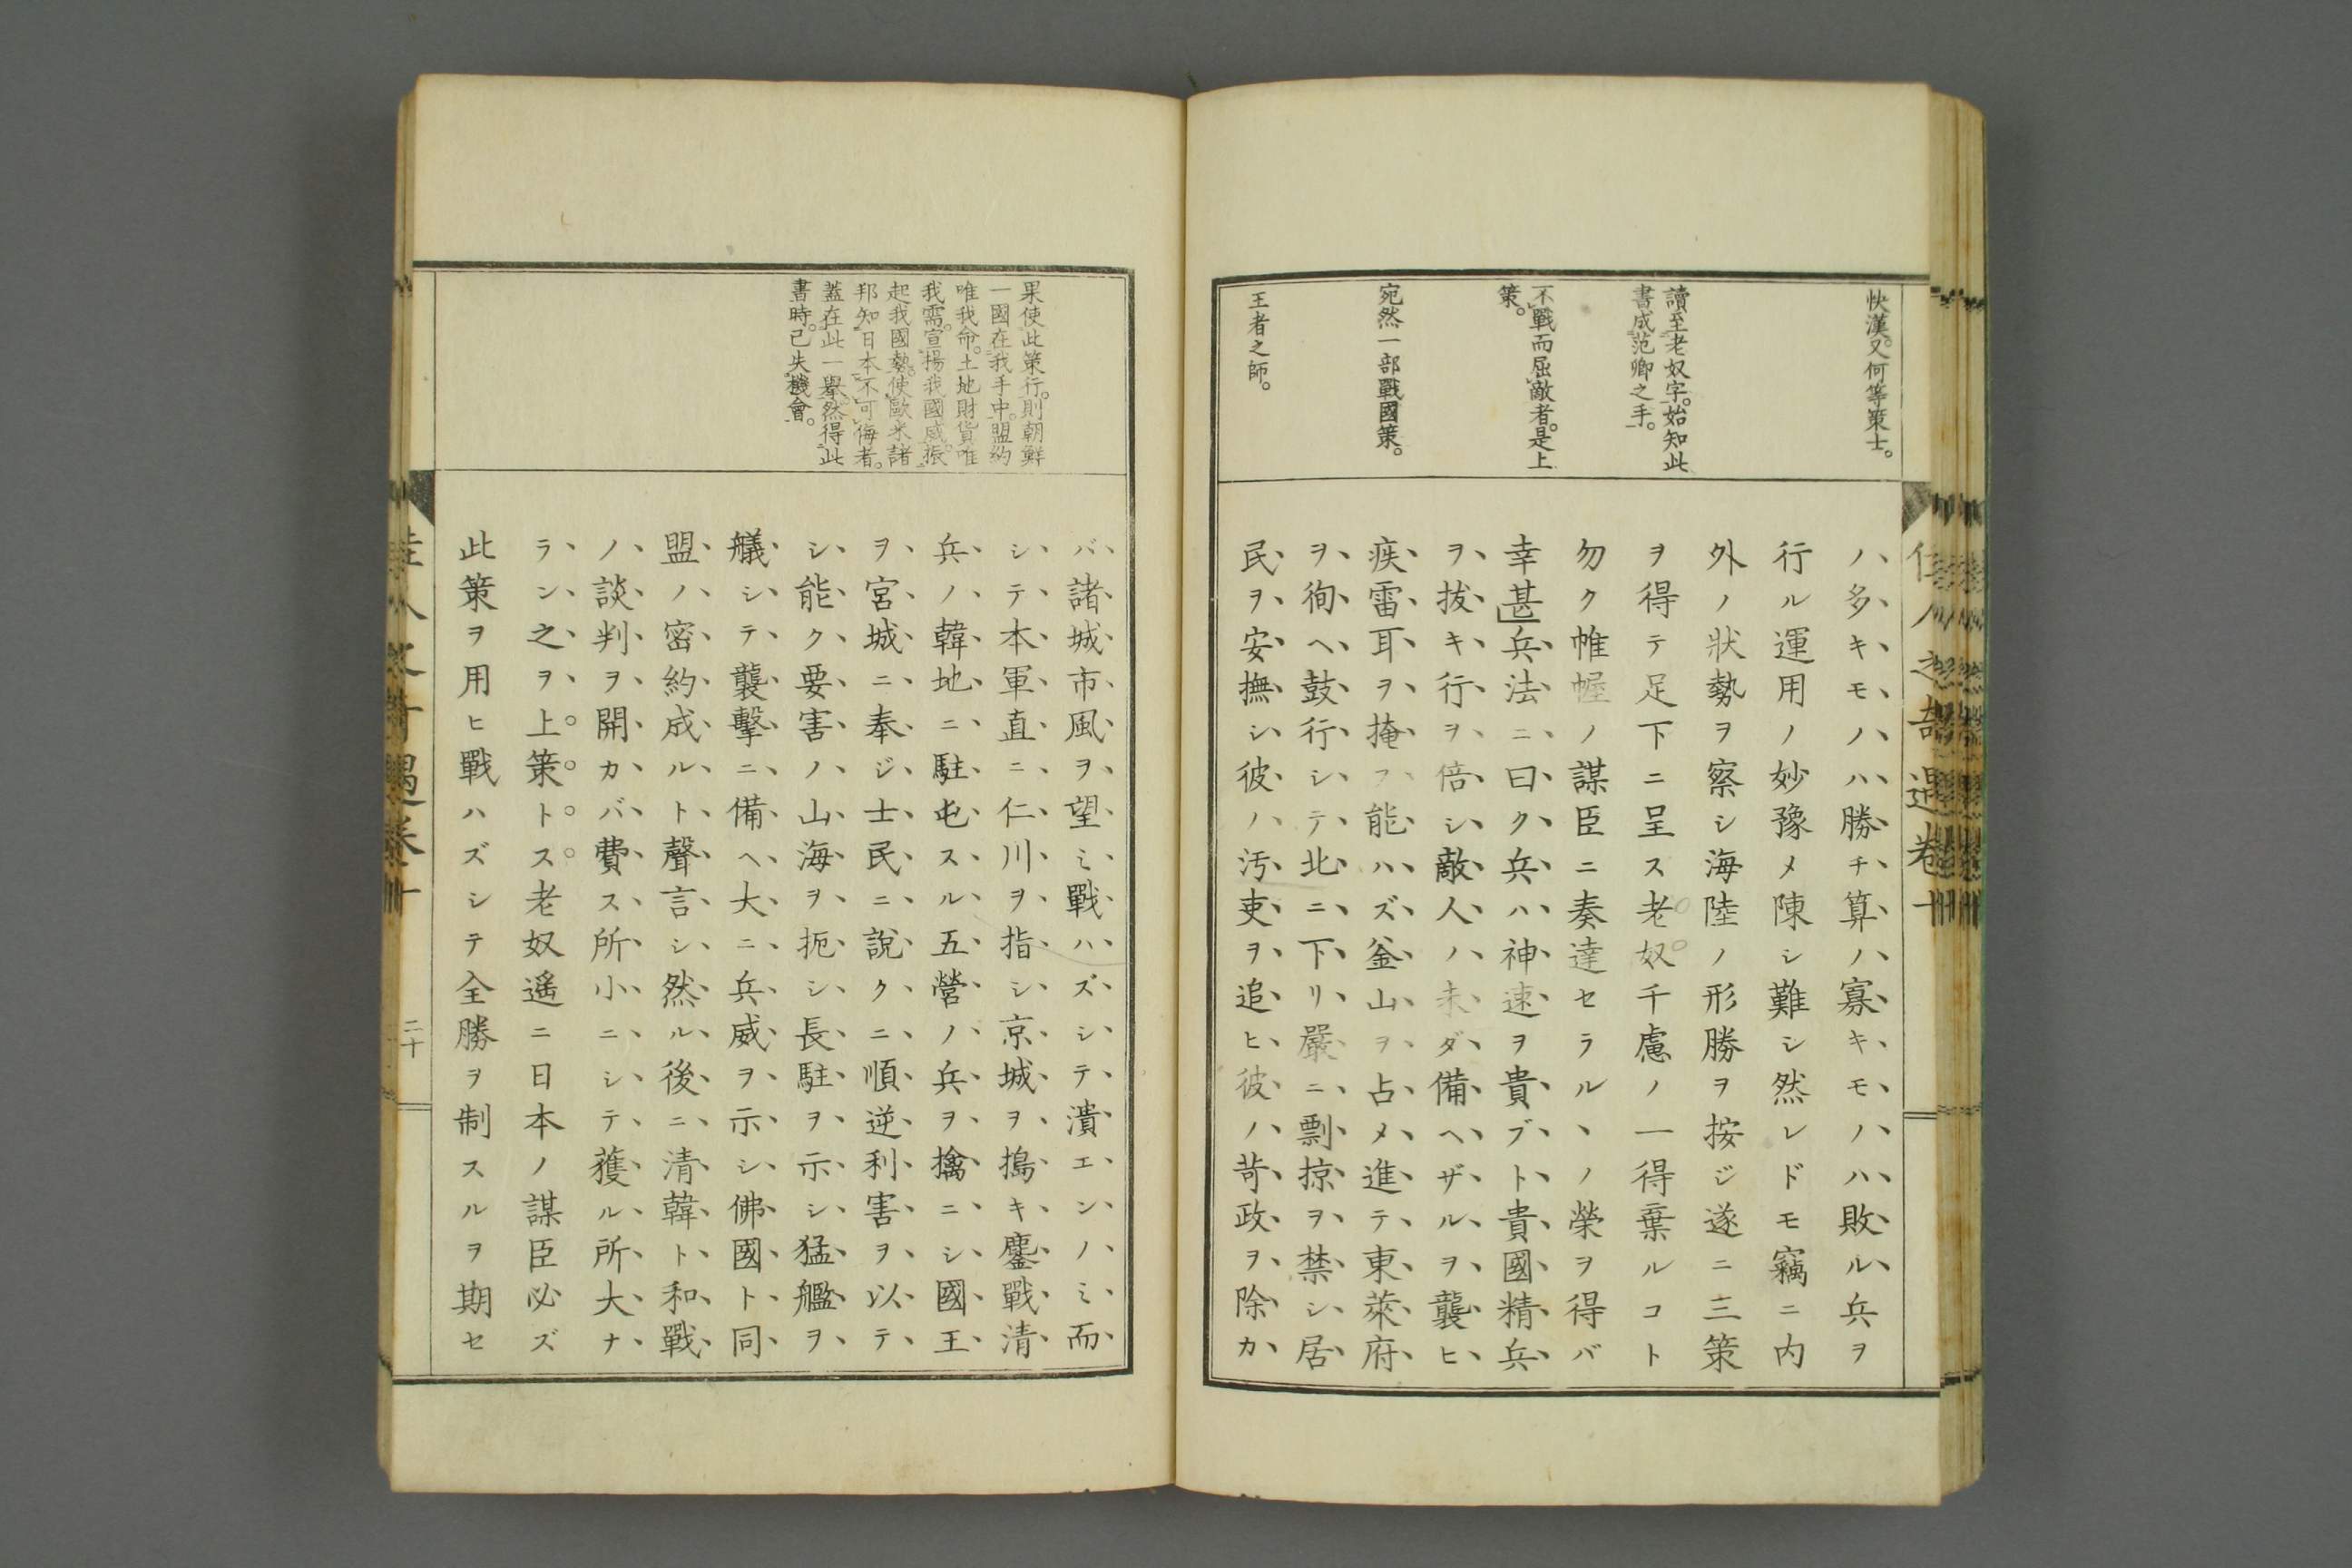 快漢。又何等策士。
讀至老奴字。始知此
書成范卿之手。
不戰而屈敵者。是上
策。
宛然一部戰國策。
王者之師。
ハ多キモノハ勝チ算ノ寡キモノハ敗ル兵ヲ
行ル運用ノ妙豫メ陳シ難シ然レドモ竊ニ内
外ノ狀勢ヲ察シ海陸ノ形勝ヲ按ジ遂ニ三策
ヲ得テ足下ニ呈ス老奴千慮ノ一得棄ルコト
勿ク帷幄ノ謀臣ニ奏達セラルヽノ榮ヲ得バ
幸甚」兵法ニ曰ク兵ハ神速ヲ貴ブト貴國精兵
ヲ拔キ行ヲ倍シ敵人ノ未ダ備ヘザルヲ襲ヒ
疾雷耳ヲ掩フ能ハズ釜山ヲ占メ進テ東萊府
ヲ徇ヘ鼓行シテ北ニ下リ嚴ニ剽掠ヲ禁シ居
民ヲ安撫シ彼ノ汚吏ヲ追ヒ彼ノ苛政ヲ除カ
佳人之奇遇卷十
果使此策行。則朝鮮
一國在我手中。盟約
唯我命。土地財貨唯
我需。宣揚我國威。振
起我國勢。使歐米諸
邦知日本不可侮者。
蓋在此一擧。然得此
書時。已失機會。
バ諸城市風ヲ望ミ戰ハズシテ潰エンノミ而
シテ本軍直ニ仁川ヲ指シ京城ヲ搗キ鏖戰清
兵ノ韓地ニ駐屯スル五營ノ兵ヲ擒ニシ國王
ヲ宮城ニ奉ジ士民ニ說クニ順逆利害ヲ以テ
シ能ク要害ノ山海ヲ扼シ長駐ヲ示シ猛艦ヲ
艤シテ襲擊ニ備ヘ大ニ兵威ヲ示シ佛國ト同
盟ノ密約成ルト聲言シ然ル後ニ清韓ト和戰
ノ談判ヲ開カバ費ス所小ニシテ獲ル所大ナ
ラン之ヲ上策トス老奴遙ニ日本ノ謀臣必ズ
此策ヲ用ヒ戰ハズシテ全勝ヲ制スルヲ期セ
佳人之奇遇卷十
二十